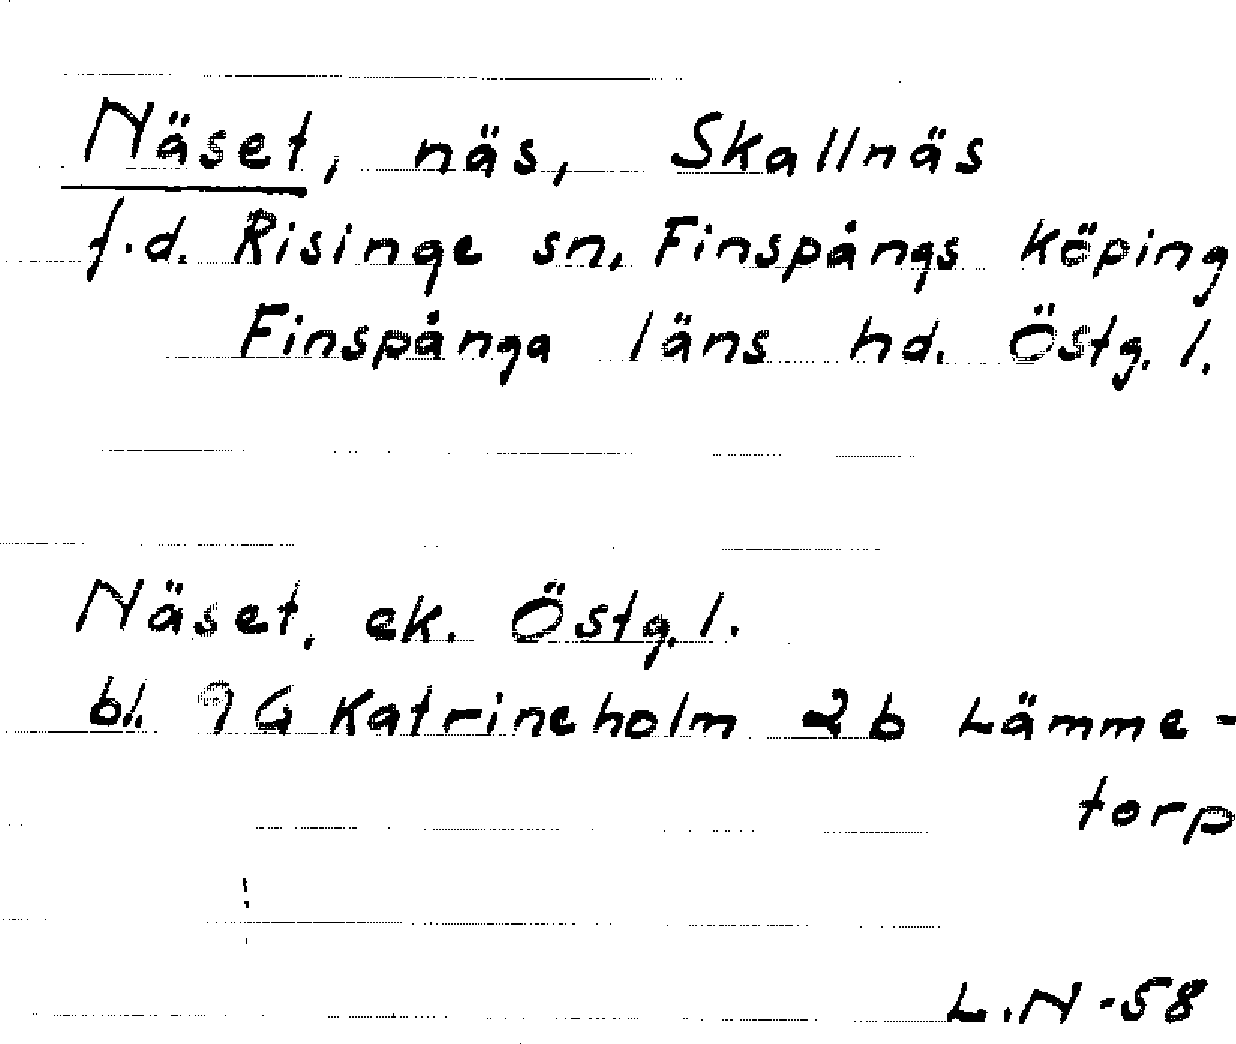 Näset, näs, Skallnäs
f.d. Risinge sn, Finspångs köping
Finspånga läns hd. Östg. l.
Näset, ek. Östg. l.
bl. 9G Katrineholm 2b Lämme-
torp
L.N -58